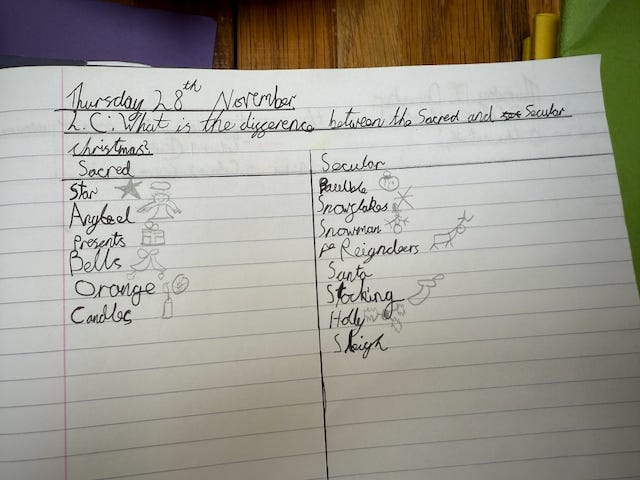 Thursday 28th November
L.C: What is the difference between the Sacred and Secular
Christmas?
Sacred
Star
Angleel
Presents
Bells
Orange
Candles
Secular
Bauble
Snowflakes
Snowman
Reigndeers
Santa
Stocking
Holly
Sleigh